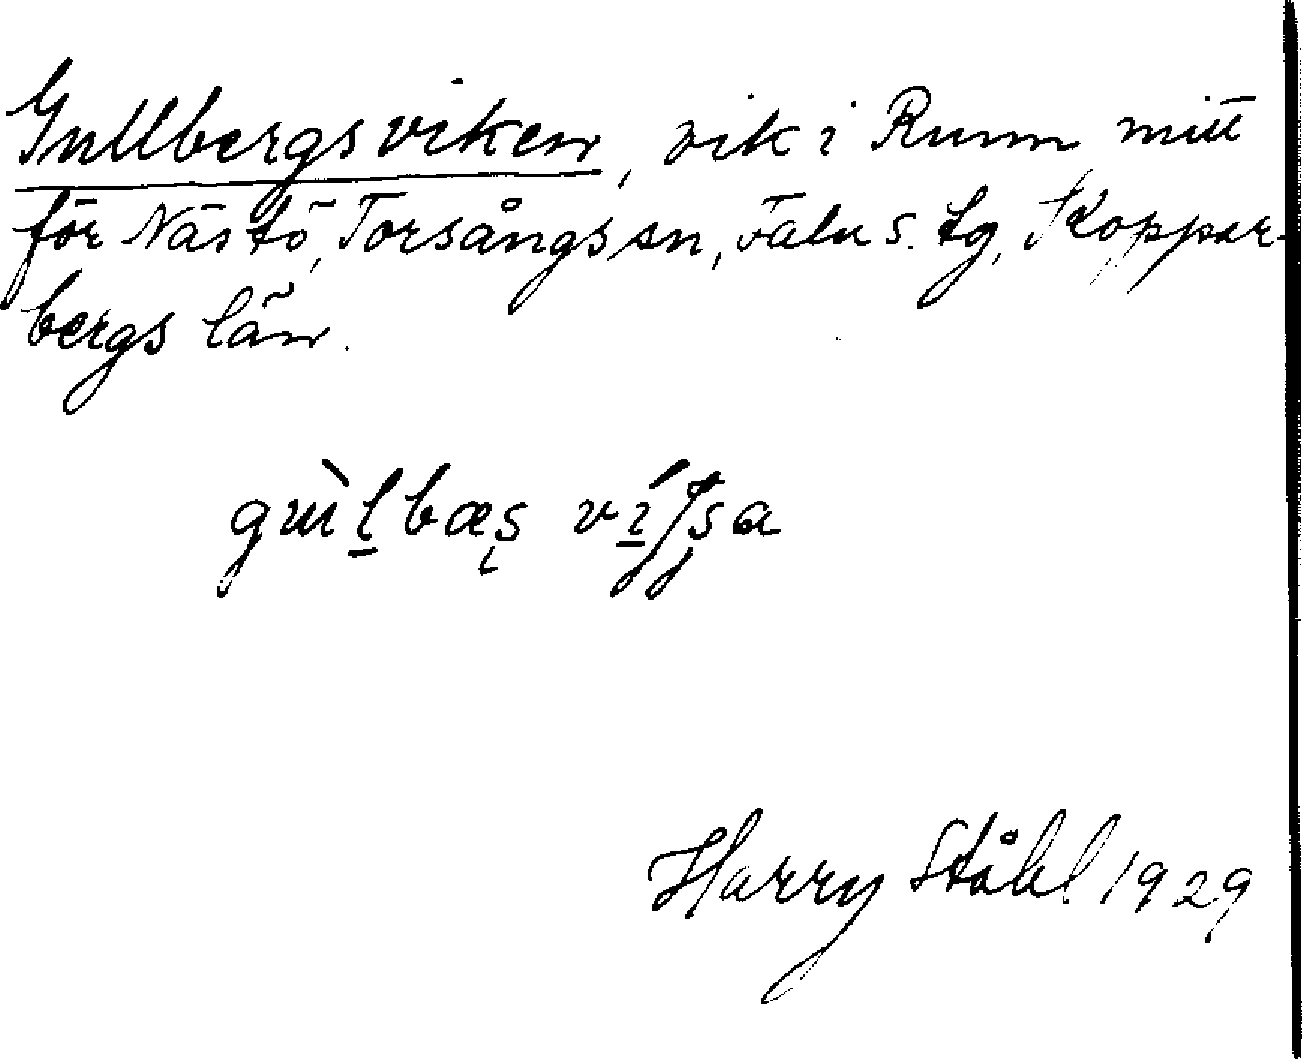 Gullbergsviken, vik i Runn mitt
för Nästö, Torsångs sn, Falu s. tg, Koppar-
bergs län.
Harry Ståhl 1929